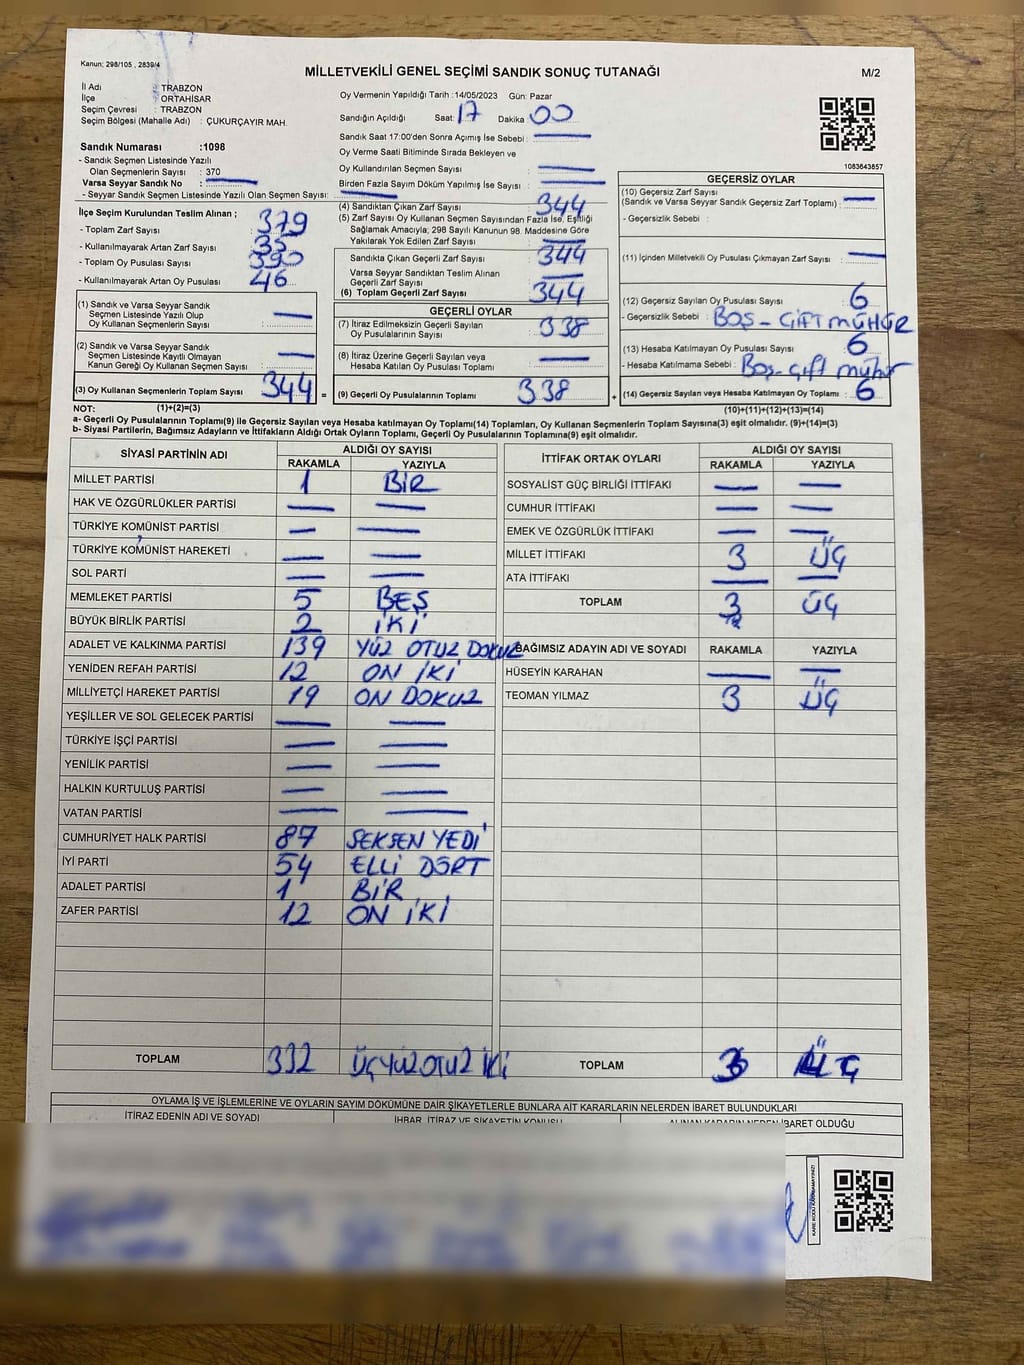 Kanun; 298/105 , 2839/4
MİLLETVEKİLİ GENEL SEÇİMİ SANDIK SONUÇ TUTANAĞI
M/2
İl Adı : TRABZON
İlçe : ORTAHİSAR
Seçim Çevresi : TRABZON
Seçim Bölgesi (Mahalle Adı) : ÇUKURÇAYIR MAH.
Sandık Numarası :1098
- Sandık Seçmen Listesinde Yazılı
Olan Seçmenlerin Sayısı : 370
Varsa Seyyar Sandık No : —
- Seyyar Sandık Seçmen Listesinde Yazılı Olan Seçmen Sayısı: —
İlçe Seçim Kurulundan Teslim Alınan ;
- Toplam Zarf Sayısı : 379
- Kullanılmayarak Artan Zarf Sayısı : 35
- Toplam Oy Pusulası Sayısı : 390
- Kullanılmayarak Artan Oy Pusulası : 46
(1) Sandık ve Varsa Seyyar Sandık
Seçmen Listesinde Yazılı Olup
Oy Kullanan Seçmenlerin Sayısı : —
(2) Sandık ve Varsa Seyyar Sandık
Seçmen Listesinde Kayıtlı Olmayan
Kanun Gereği Oy Kullanan Seçmen Sayısı : —
(3) Oy Kullanan Seçmenlerin Toplam Sayısı : 344
Oy Vermenin Yapıldığı Tarih :14/05/2023 Gün: Pazar
Sandığın Açıldığı Saat: 17 Dakika 00
Sandık Saat 17:00'den Sonra Açımış İse Sebebi : —
Oy Verme Saati Bitiminde Sırada Bekleyen ve
Oy Kullandırılan Seçmen Sayısı : —
Birden Fazla Sayım Döküm Yapılmış İse Sayısı : —
(4) Sandıktan Çıkan Zarf Sayısı : 344
(5) Zarf Sayısı Oy Kullanan Seçmen Sayısından Fazla İse, Eşitliği
Sağlamak Amacıyla; 298 Sayılı Kanunun 98. Maddesine Göre
Yakılarak Yok Edilen Zarf Sayısı : —
Sandıkta Çıkan Geçerli Zarf Sayısı : 344
Varsa Seyyar Sandıktan Teslim Alınan
Geçerli Zarf Sayısı : —
(6) Toplam Geçerli Zarf Sayısı : 344
GEÇERLİ OYLAR
(7) İtiraz Edilmeksizin Geçerli Sayılan
Oy Pusulalarının Sayısı : 338
(8) İtiraz Üzerine Geçerli Sayılan veya
Hesaba Katılan Oy Pusulaları Toplamı : —
= (9) Geçerli Oy Pusulalarının Toplamı : 338
1083643857
GEÇERSİZ OYLAR
(10) Geçersiz Zarf Sayısı
(Sandık ve Varsa Seyyar Sandık Geçersiz Zarf Toplamı) : —
- Geçersizlik Sebebi :
(11) İçinden Milletvekili Oy Pusulası Çıkmayan Zarf Sayısı : —
(12) Geçersiz Sayılan Oy Pusulası Sayısı : 6
- Geçersizlik Sebebi : BOŞ - ÇİFT MÜHÜR
(13) Hesaba Katılmayan Oy Pusulası Sayısı : 6
- Hesaba Katılmama Sebebi : Boş - çift mühür
+ (14) Geçersiz Sayılan veya Hesaba Katılmayan Oy Toplamı : 6
NOT: (1)+(2)=(3) (10)+(11)+(12)+(13)=(14)
a- Geçerli Oy Pusulalarının Toplamı(9) ile Geçersiz Sayılan veya Hesaba katılmayan Oy Toplamı(14) Toplamları, Oy Kullanan Seçmenlerin Toplam Sayısına(3) eşit olmalıdır. (9)+(14)=(3)
b- Siyasi Partilerin, Bağımsız Adayların ve İttifakların Aldığı Ortak Oyların Toplamı, Geçerli Oy Pusulalarının Toplamına(9) eşit olmalıdır.
SİYASİ PARTİNİN ADI ALDIĞI OY SAYISI
RAKAMLA YAZIYLA
MİLLET PARTİSİ 1 BİR
HAK VE ÖZGÜRLÜKLER PARTİSİ — —
TÜRKİYE KOMÜNİST PARTİSİ — —
TÜRKİYE KOMÜNİST HAREKETİ — —
SOL PARTİ — —
MEMLEKET PARTİSİ 5 BEŞ
BÜYÜK BİRLİK PARTİSİ 2 İKİ
ADALET VE KALKINMA PARTİSİ 139 YÜZ OTUZ DOKUZ
YENİDEN REFAH PARTİSİ 12 ON İKİ
MİLLİYETÇİ HAREKET PARTİSİ 19 ON DOKUZ
YEŞİLLER VE SOL GELECEK PARTİSİ — —
TÜRKİYE İŞÇİ PARTİSİ — —
YENİLİK PARTİSİ — —
HALKIN KURTULUŞ PARTİSİ — —
VATAN PARTİSİ — —
CUMHURİYET HALK PARTİSİ 87 SEKSEN YEDİ
İYİ PARTİ 54 ELLİ DÖRT
ADALET PARTİSİ 1 BİR
ZAFER PARTİSİ 12 ON İKİ
TOPLAM 332 ÜÇYÜZ OTUZ İKİ
İTTİFAK ORTAK OYLARI ALDIĞI OY SAYISI
RAKAMLA YAZIYLA
SOSYALİST GÜÇ BİRLİĞİ İTTİFAKI — —
CUMHUR İTTİFAKI — —
EMEK VE ÖZGÜRLÜK İTTİFAKI — —
MİLLET İTTİFAKI 3 ÜÇ
ATA İTTİFAKI — —
TOPLAM 3 ÜÇ
BAĞIMSIZ ADAYIN ADI VE SOYADI RAKAMLA YAZIYLA
HÜSEYİN KARAHAN — —
TEOMAN YILMAZ 3 ÜÇ
TOPLAM 3 ÜÇ
OYLAMA İŞ VE İŞLEMLERİNE VE OYLARIN SAYIM DÖKÜMÜNE DAİR ŞİKAYETLERLE BUNLARA AİT KARARLARIN NELERDEN İBARET BULUNDUKLARI
İTİRAZ EDENİN ADI VE SOYADI İHBAR, İTİRAZ VE ŞİKAYETİN KONUSU ALINAN KARARIN NEDEN İBARET OLDUĞU